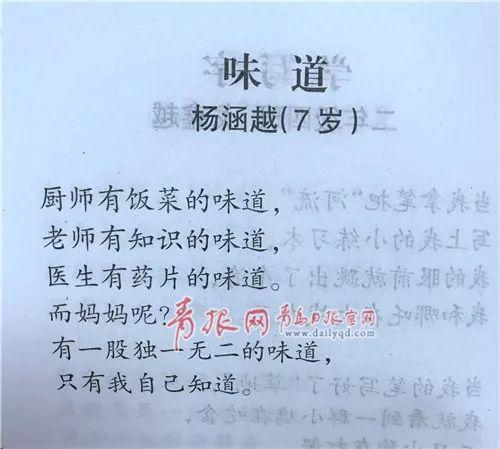 味道
杨涵越(7岁)
厨师有饭菜的味道，
老师有知识的味道，
医生有药片的味道。
而妈妈呢？
青报网 青岛日报官网
www.dailyqd.com
有一股独一无二的味道，
只有我自己知道。